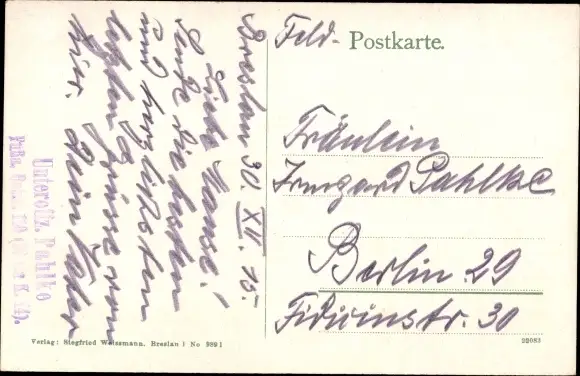 Feld- Postkarte.
Breslau 30. XII. 15.
Liebe Mause!
Sende Dir besten
und herzlichsten
letzten Grüsse von
hier. Dein Vater
Unteroffz. Pahlke
Fräulein
Irmgard Pahlke
Berlin. 29
Fidicinstr. 30
Verlag: Siegfried Weissmann, Breslau I No 999
22083